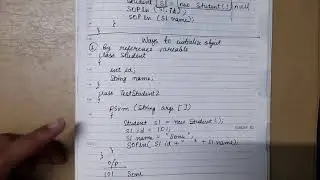 Student S1 = new Student(); null
SOP ln (S1. id);
SOP ln (S1 name);
}
Ways to initialize object
1) By reference variable
class Student
{
int id;
String name;
}
class TestStudent2
{
PSvm (String args [])
{
Student S1 = new Student();
S1. id = 101;
S1. name = "Sonu";
SOPln( S1. id + " " + S1. name);
}
}
O/P
101 Sonu